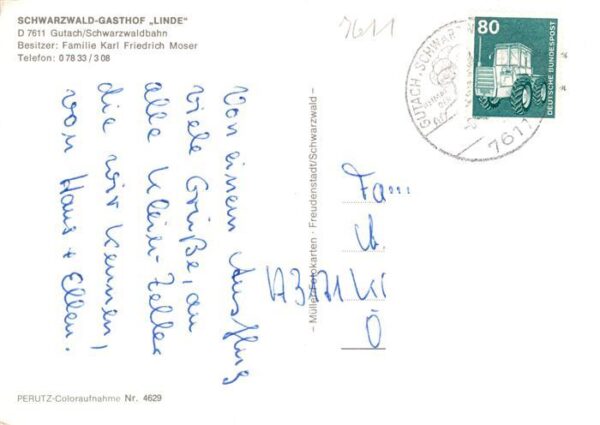 SCHWARZWALD-GASTHOF „LINDE"
D 7611 Gutach/Schwarzwaldbahn
Besitzer: Familie Karl Friedrich Moser
Telefon: 0 78 33 / 3 08
7611
80
DEUTSCHE BUNDESPOST
GUTACH, SCHWARZW
7611
Von einem Ausflug
viele Grüße, an
alle Klein-Zeller
die wir kennen,
von Hans + Ellen.
– Müller Fotokarten · Freudenstadt/Schwarzwald –
Fam.
A3171 Kl
Ö
PERUTZ-Coloraufnahme Nr. 4629